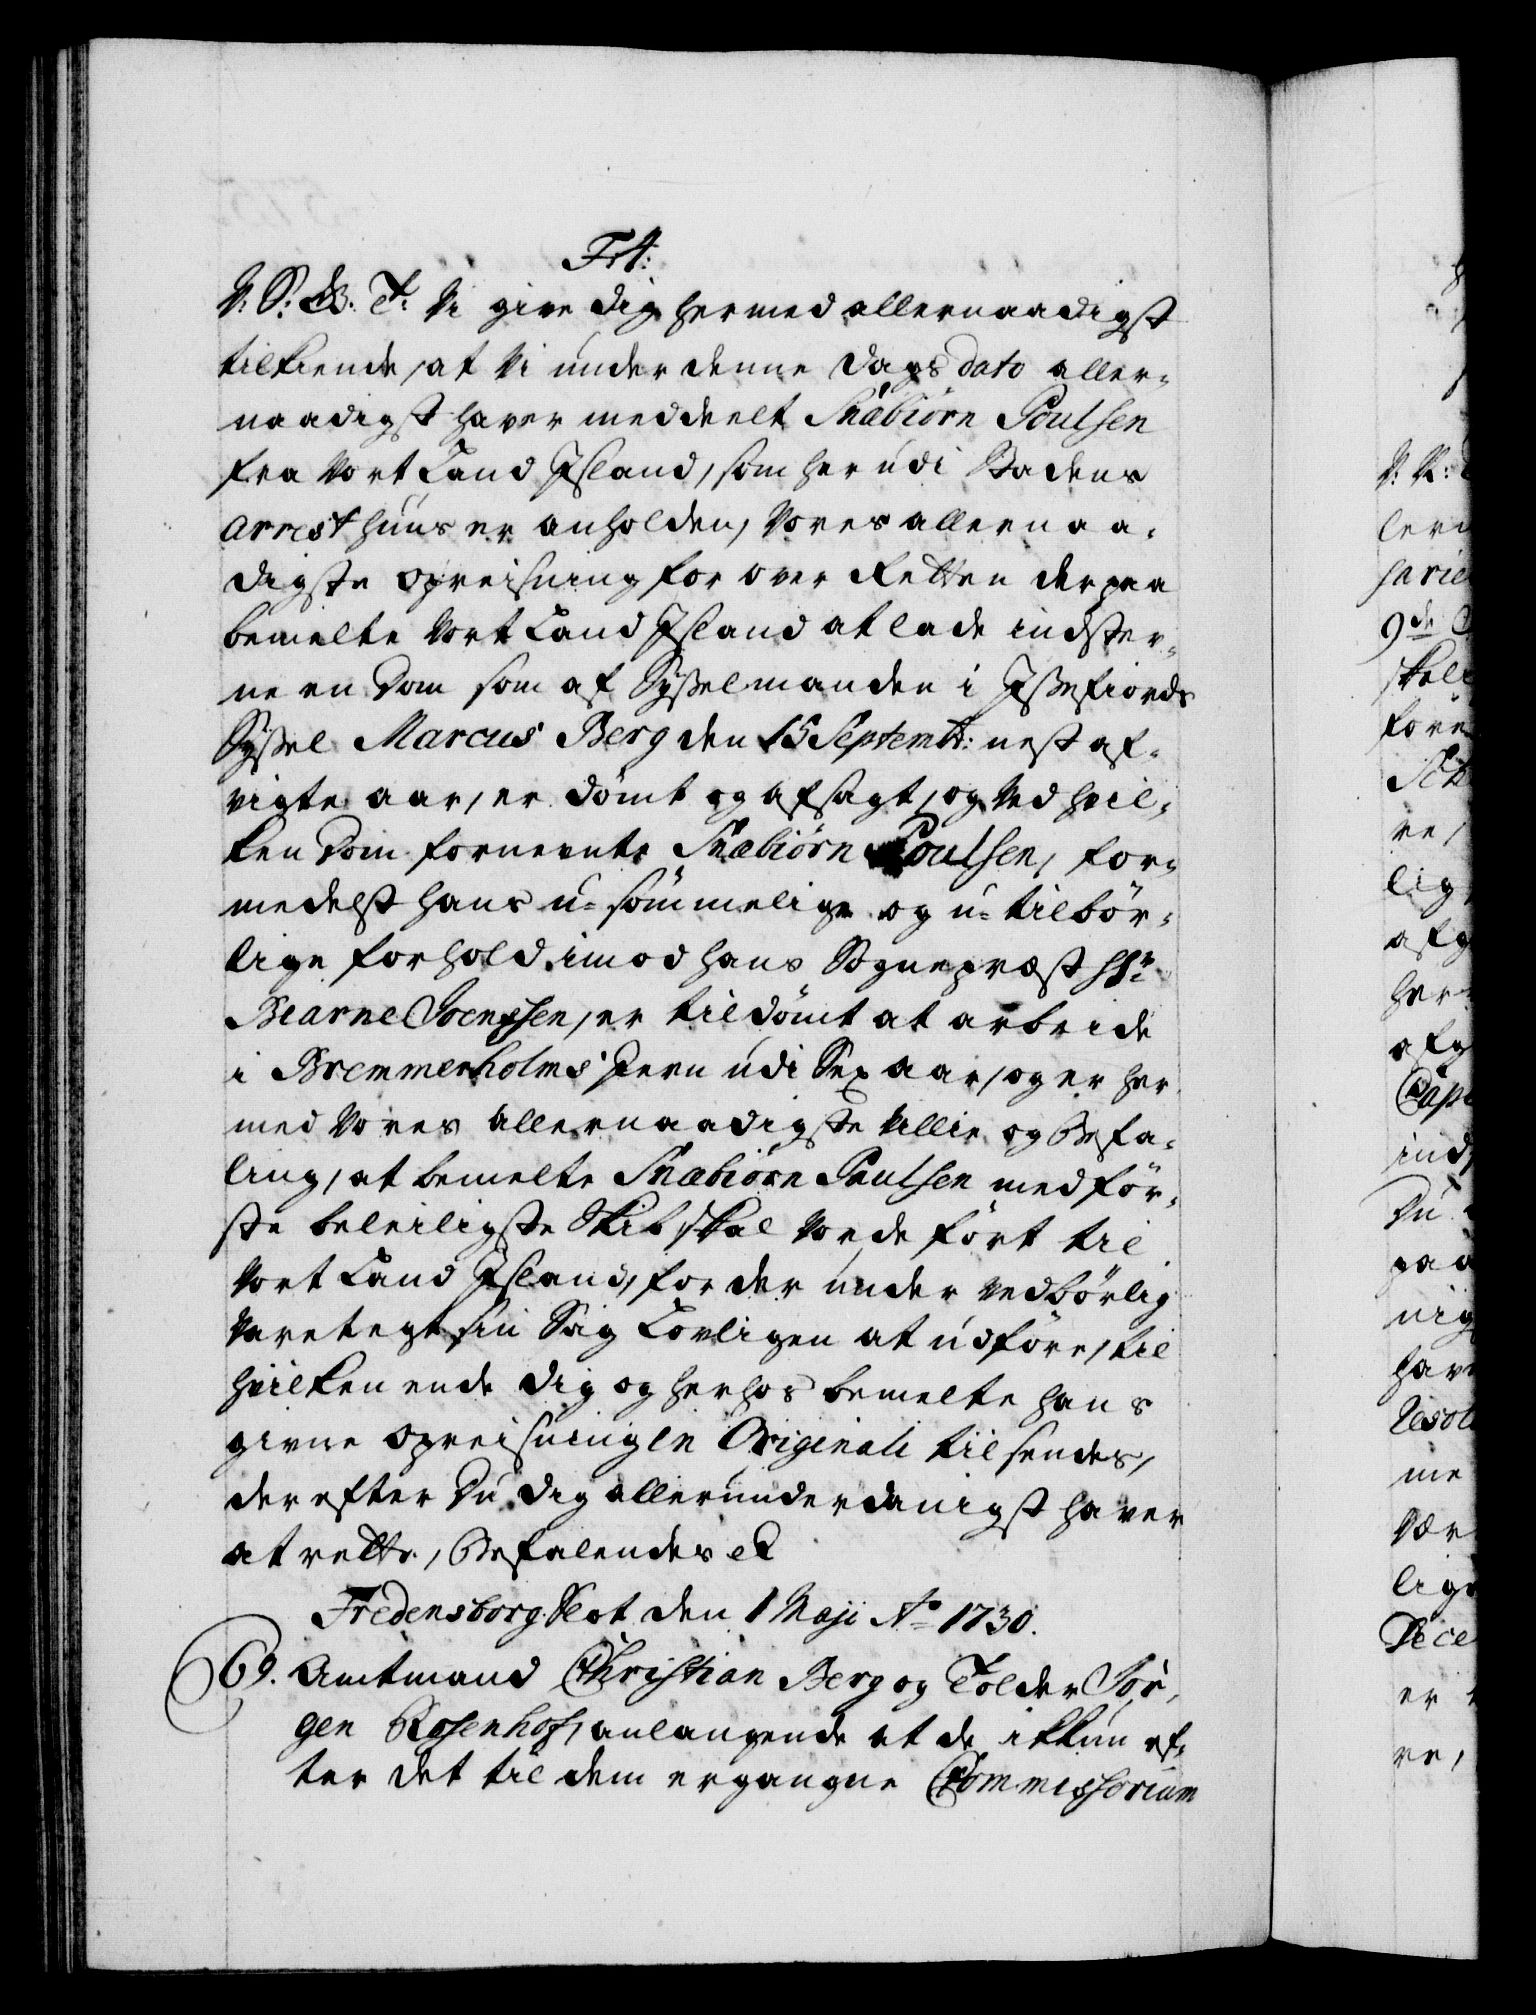 Fr4:
V. S. G. T. Vi give dig hermed allernaadigst
tilkiende, at Vi under denne Dags dato aller-
naadigst haver meddeelt Snæbiörn Poulsen
fra Vort Land Jsland, som her udi Stadens
Arresthuus er anholden, Vores allernaa-
digste opreisning for over Retten der paa
bemelte Vort Land Jsland at lade indster-
ne en Dom som af Sysselmanden i Issefiords
Syssel Marcus Berg den 15 Septembr: nest af-
vigte aar, er dömt og afsagt, og ved hvil-
ken Dom fornevnte Snæbiörn Poulsen, for-
medelst hans u-sömmelige og u-tilbör-
lige forhold imod hans Sognepræst Hr:
Biarne Svenssen, er tildömt at arbeide
i Bremmerholms Jern udi Sex aar, og er her
med Vores allernaadigste Villie og Befa-
ling, at bemelte Snæbiörn Paulsen med för-
ste beleiligste Skib skal vorde fört til
Vort Land Jsland, for der under vedbörlig
Varetegt sin Sag Lovligen at udföre, til
hvilken ende dig og herhos bemelte hans
givne opreisning in Originali tilsendes,
derefter Du dig allerunderdanigst haver
at rette, Befalendes etc
Fredensborg Slot den 1 Maji Ao 1730.
69. Amtmand Christian Berg og Tolder Jör-
gen Rosenhof, anlangende at de ikkun ef-
ter det til dem ergangne Commissorium